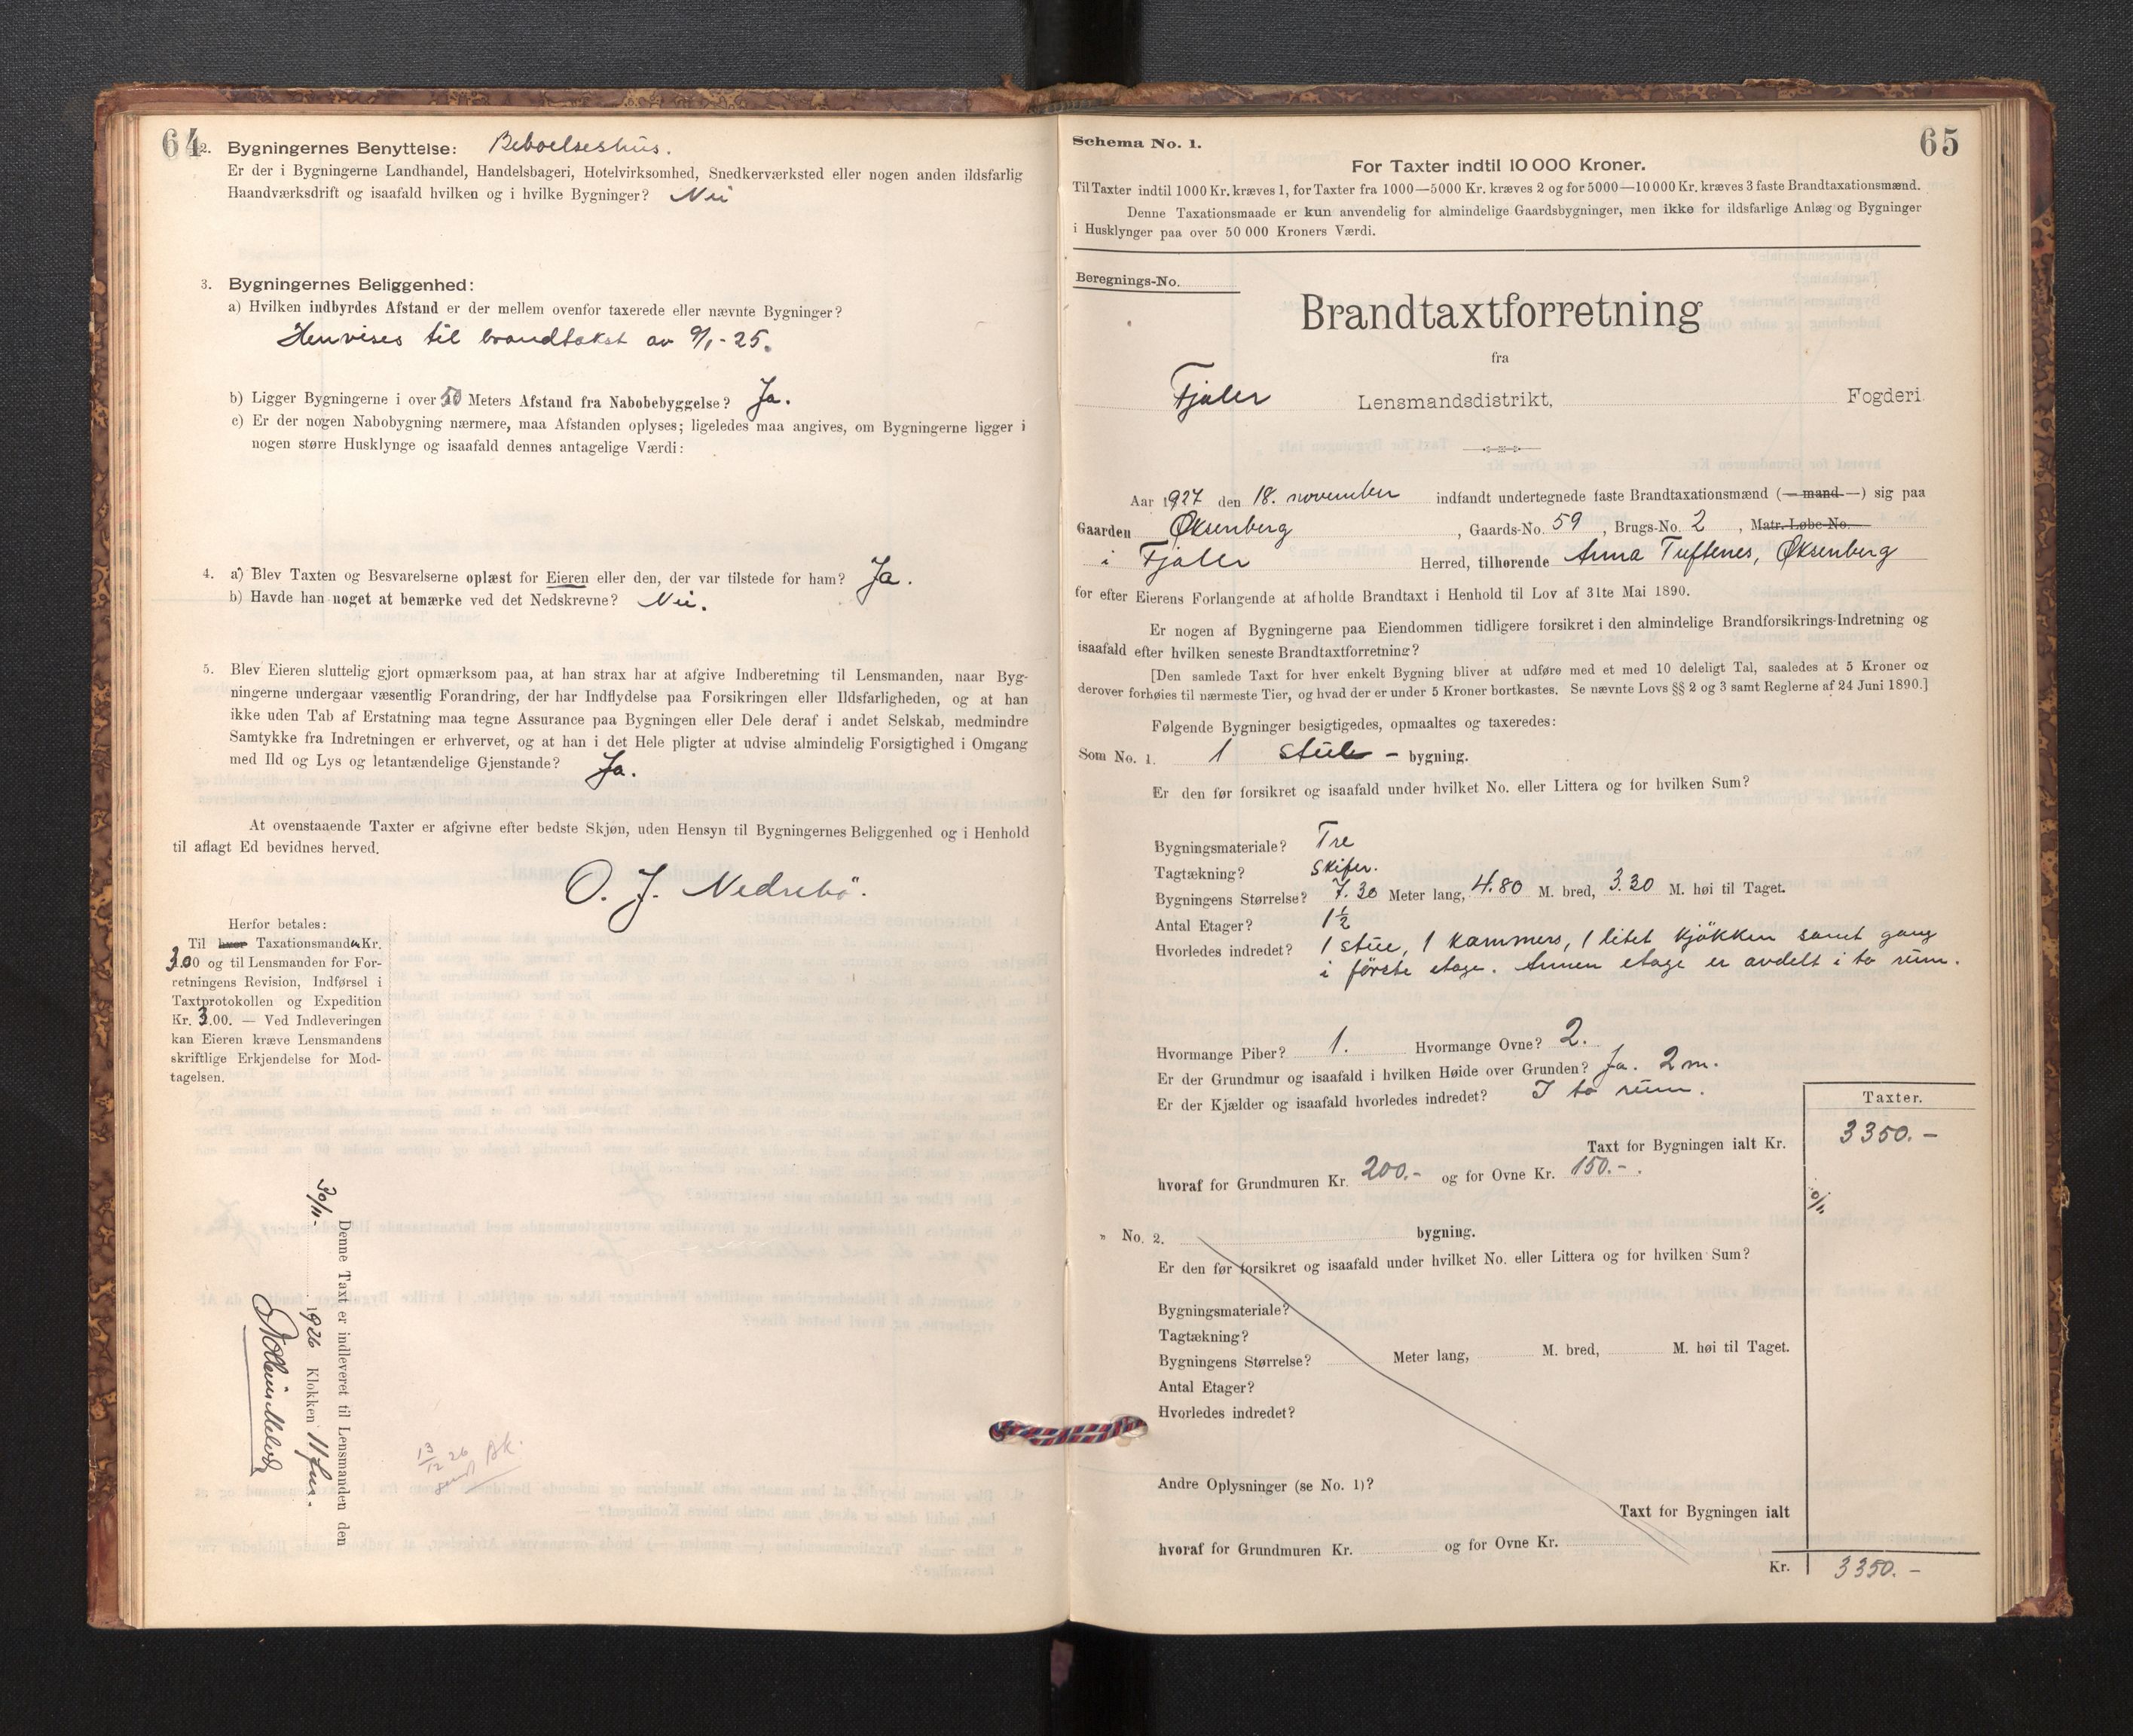 64
2. Bygningernes Benyttelse: Beboelseshus.
Er der i Bygningerne Landhandel, Handelsbageri, Hotelvirksomhed, Snedkerværksted eller nogen anden ildsfarlig
Haandværksdrift og isaafald hvilken og i hvilke Bygninger? Nei
3. Bygningernes Beliggenhed:
a) Hvilken indbyrdes Afstand er der mellem ovenfor taxerede eller nævnte Bygninger?
Henvises til brandtakst av 9/1-25.
b) Ligger Bygningerne i over 50 Meters Afstand fra Nabobebyggelse? Ja.
c) Er der nogen Nabobygning nærmere, maa Afstanden oplyses; ligeledes maa angives, om Bygningerne ligger i
nogen større Husklynge og isaafald dennes antagelige Værdi:
4. a) Blev Taxten og Besvarelserne oplæst for Eieren eller den, der var tilstede for ham? Ja.
b) Havde han noget at bemærke ved det Nedskrevne? Nei.
5. Blev Eieren sluttelig gjort opmærksom paa, at han strax har at afgive Indberetning til Lensmanden, naar Byg-
ningerne undergaar væsentlig Forandring, der har Indflydelse paa Forsikringen eller Ildsfarligheden, og at han
ikke uden Tab af Erstatning maa tegne Assurance paa Bygningen eller Dele deraf i andet Selskab, medmindre
Samtykke fra Indretningen er erhvervet, og at han i det Hele pligter at udvise almindelig Forsigtighed i Omgang
med Ild og Lys og letantændelige Gjenstande? Ja.
At ovenstaaende Taxter er afgivne efter bedste Skjøn, uden Hensyn til Bygningernes Beliggenhed og i Henhold
til aflagt Ed bevidnes herved.
O. J. Nedrebö.
Herfor betales:
Til hver Taxationsmand Kr.
3.00 og til Lensmanden for For-
retningens Revision, Indførsel i
Taxtprotokollen og Expedition
Kr. 3.00. — Ved Indleveringen
kan Eieren kræve Lensmandens
skriftlige Erkjendelse for Mod-
tagelsen.
Denne Taxt er indleveret til Lensmanden den
30/11- 1926 Klokken 11 fm.
13/12 26
Schema No. 1.
65
For Taxter indtil 10 000 Kroner.
Til Taxter indtil 1000 Kr. kræves 1, for Taxter fra 1000—5000 Kr. kræves 2 og for 5000—10 000 Kr. kræves 3 faste Brandtaxationsmænd.
Denne Taxationsmaade er kun anvendelig for almindelige Gaardsbygninger, men ikke for ildsfarlige Anlæg og Bygninger
i Husklynger paa over 50 000 Kroners Værdi.
Beregnings-No.
Brandtaxtforretning
fra
Fjaler Lensmandsdistrikt, Fogderi
Aar 1927 den 18. november indfandt undertegnede faste Brandtaxationsmænd (— mand —) sig paa
Gaarden Øksenberg, Gaards-No. 59, Brugs-No. 2, Matr. Løbe-No.
i Fjaler Herred, tilhørende Anna Tuftenes, Øksenberg
for efter Eierens Forlangende at afholde Brandtaxt i Henhold til Lov af 31te Mai 1890.
Er nogen af Bygningerne paa Eiendommen tidligere forsikret i den almindelige Brandforsikrings-Indretning og
isaafald efter hvilken seneste Brandtaxtforretning?
[Den samlede Taxt for hver enkelt Bygning bliver at udføre med et med 10 deleligt Tal, saaledes at 5 Kroner og
derover forhøies til nærmeste Tier, og hvad der er under 5 Kroner bortkastes. Se nævnte Lovs §§ 2 og 3 samt Reglerne af 24 Juni 1890.]
Følgende Bygninger besigtigedes, opmaaltes og taxeredes:
Som No. 1. 1 stue - bygning.
Er den før forsikret og isaafald under hvilket No. eller Littera og for hvilken Sum?
Bygningsmateriale? Tre
Tagtækning? Skifer.
Bygningens Størrelse? 7.30 Meter lang, 4.80 M. bred, 3.20 M. høi til Taget.
Antal Etager? 1½
Hvorledes indredet? 1 stue, 1 kammers, 1 litet kjökken samt gang
i förste etage. Annen etage er avdelt i to rum.
Hvormange Piber? 1. Hvormange Ovne? 2.
Er der Grundmur og isaafald i hvilken Høide over Grunden? Ja. 2 m.
Er der Kjælder og isaafald hvorledes indredet? I to rum.
Taxter.
Taxt for Bygningen ialt Kr. 3350.-
hvoraf for Grundmuren Kr. 200.- og for Ovne Kr. 150.-
" No. 2. bygning.
Er den før forsikret og isaafald under hvilket No. eller Littera og for hvilken Sum?
Bygningsmateriale?
Tagtækning?
Bygningens Størrelse? Meter lang, M. bred, M. høi til Taget.
Antal Etager?
Hvorledes indredet?
Andre Oplysninger (se No. 1)?
Taxt for Bygningen ialt
hvoraf for Grundmuren Kr. og for Ovne Kr.
Kr. 3350.-